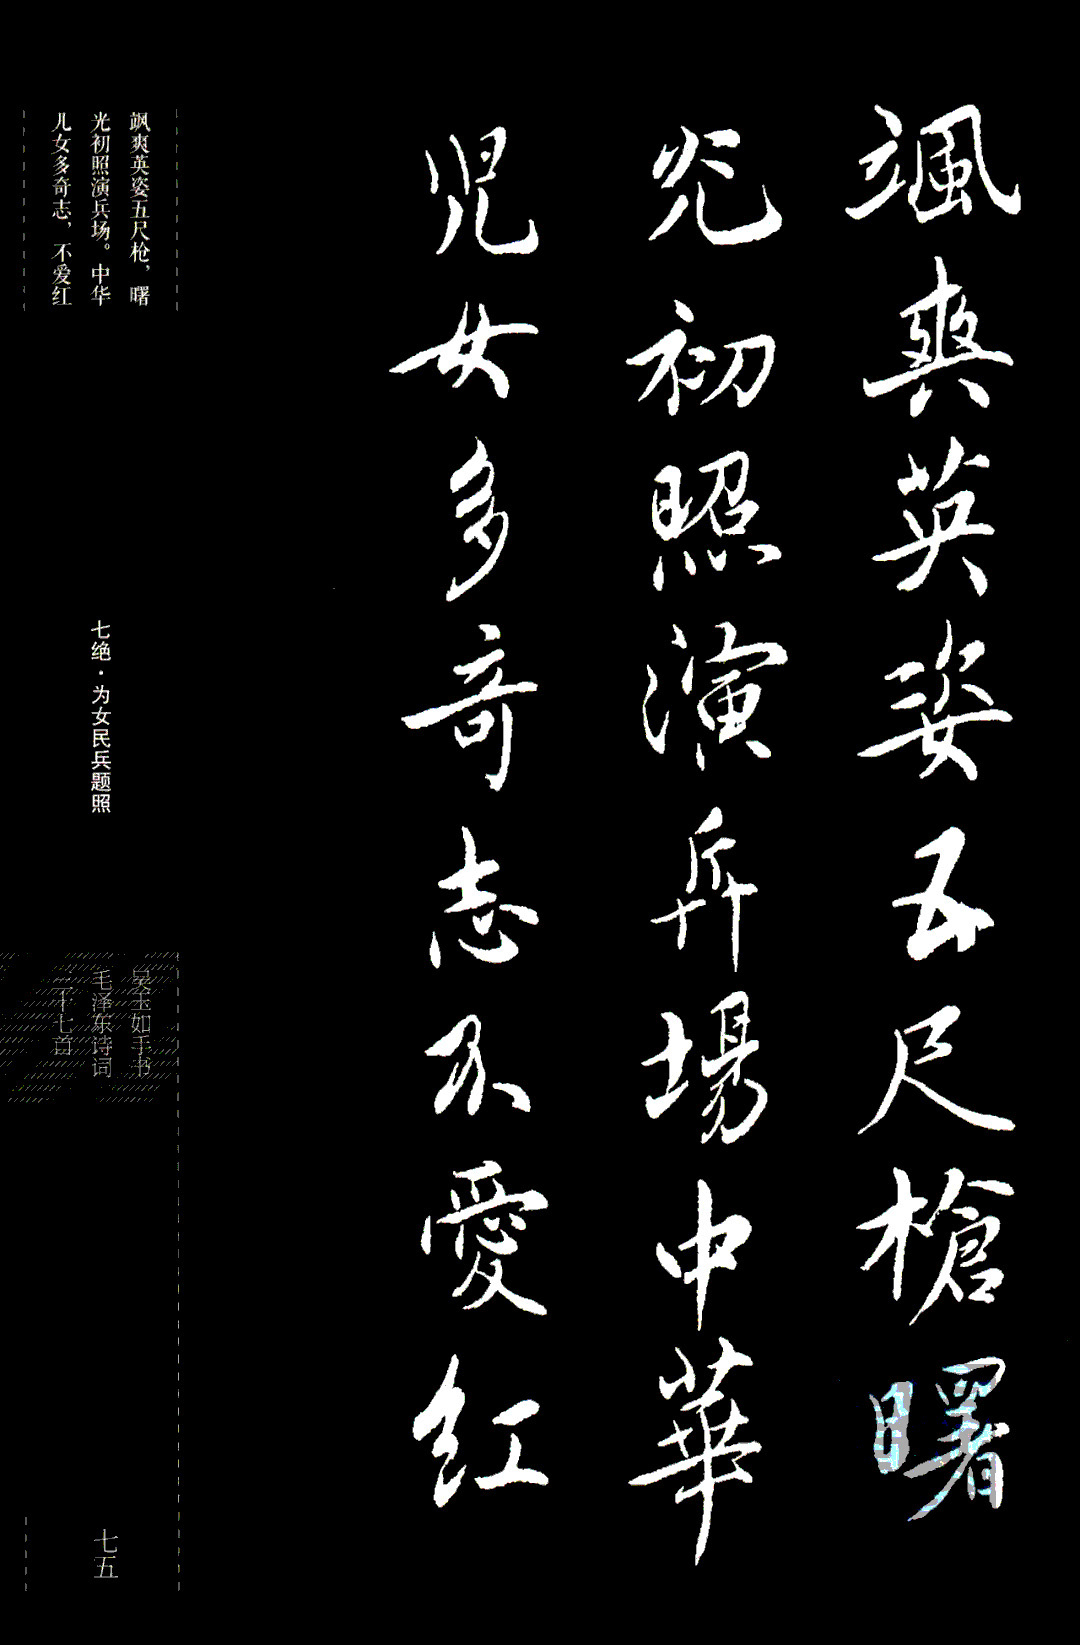 颯爽英姿五尺槍曙
光初照演兵場中華
兒女多奇志不愛紅
飒爽英姿五尺枪，曙
光初照演兵场。中华
儿女多奇志，不爱红
七绝·为女民兵题照
吴玉如手书
毛泽东诗词
二十七首
七五